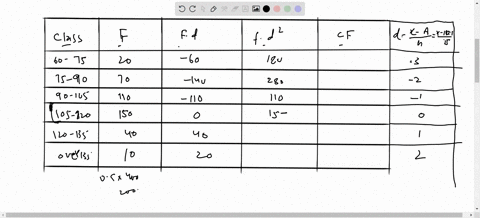 Class F Fd f.d² CF d = x-A/h = x-
60-75 20 -60 180 -3
75-90 70 -140 280 -2
90-105 110 -110 110 -1
105-120 150 0 15- 0
120-135 40 40 1
over 135 10 20 2
0.5 x 400
200